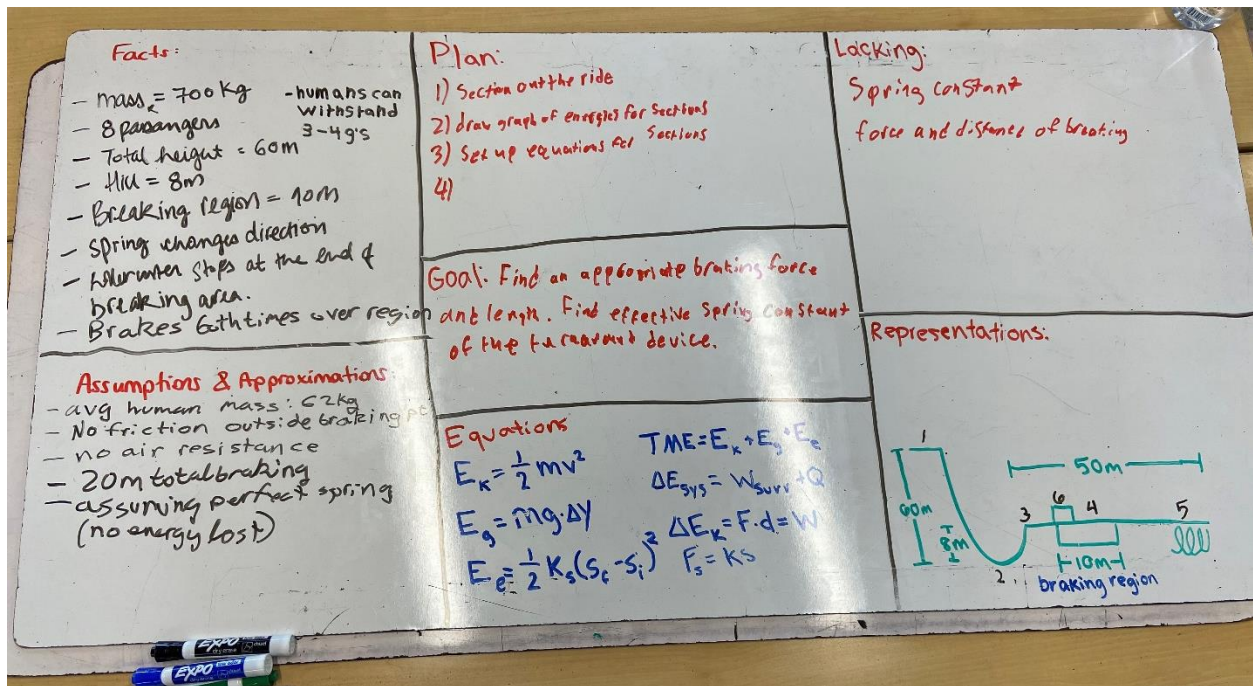 Facts:
- mass = 700 kg
- 8 pasangers
- Total height = 60m
- Hill = 8m
- Breaking region = 10m
- Spring changes direction
- stops at the end of
breaking area.
- Brakes both times over region
- humans can
withstand
3-4g's
Assumptions & Approximations:
- avg human mass: 62kg
- No friction outside braking pt
- no air resistance
- 20m total braking
- assuming perfect spring
(no energy lost)
Plan:
1) Section out the ride
2) draw graph of energies for Sections
3) Set up equations for Sections
4)
Goal: Find an appropriate braking force
and length. Find effective Spring constant
of the turnaround device.
Equations
E_K = 1/2 mv²
E_g = mg·Δy
E_e = 1/2 K_s(S_f - S_i)²
TME = E_K + E_g + E_e
ΔE_sys = W_surr + Q
ΔE_K = F·d = W
F_s = KS
Lacking:
Spring constant
force and distance of breaking
Representations:
1
50m
60m
8m
3
6
4
5
2
10m
braking region
EXPO
EXPO